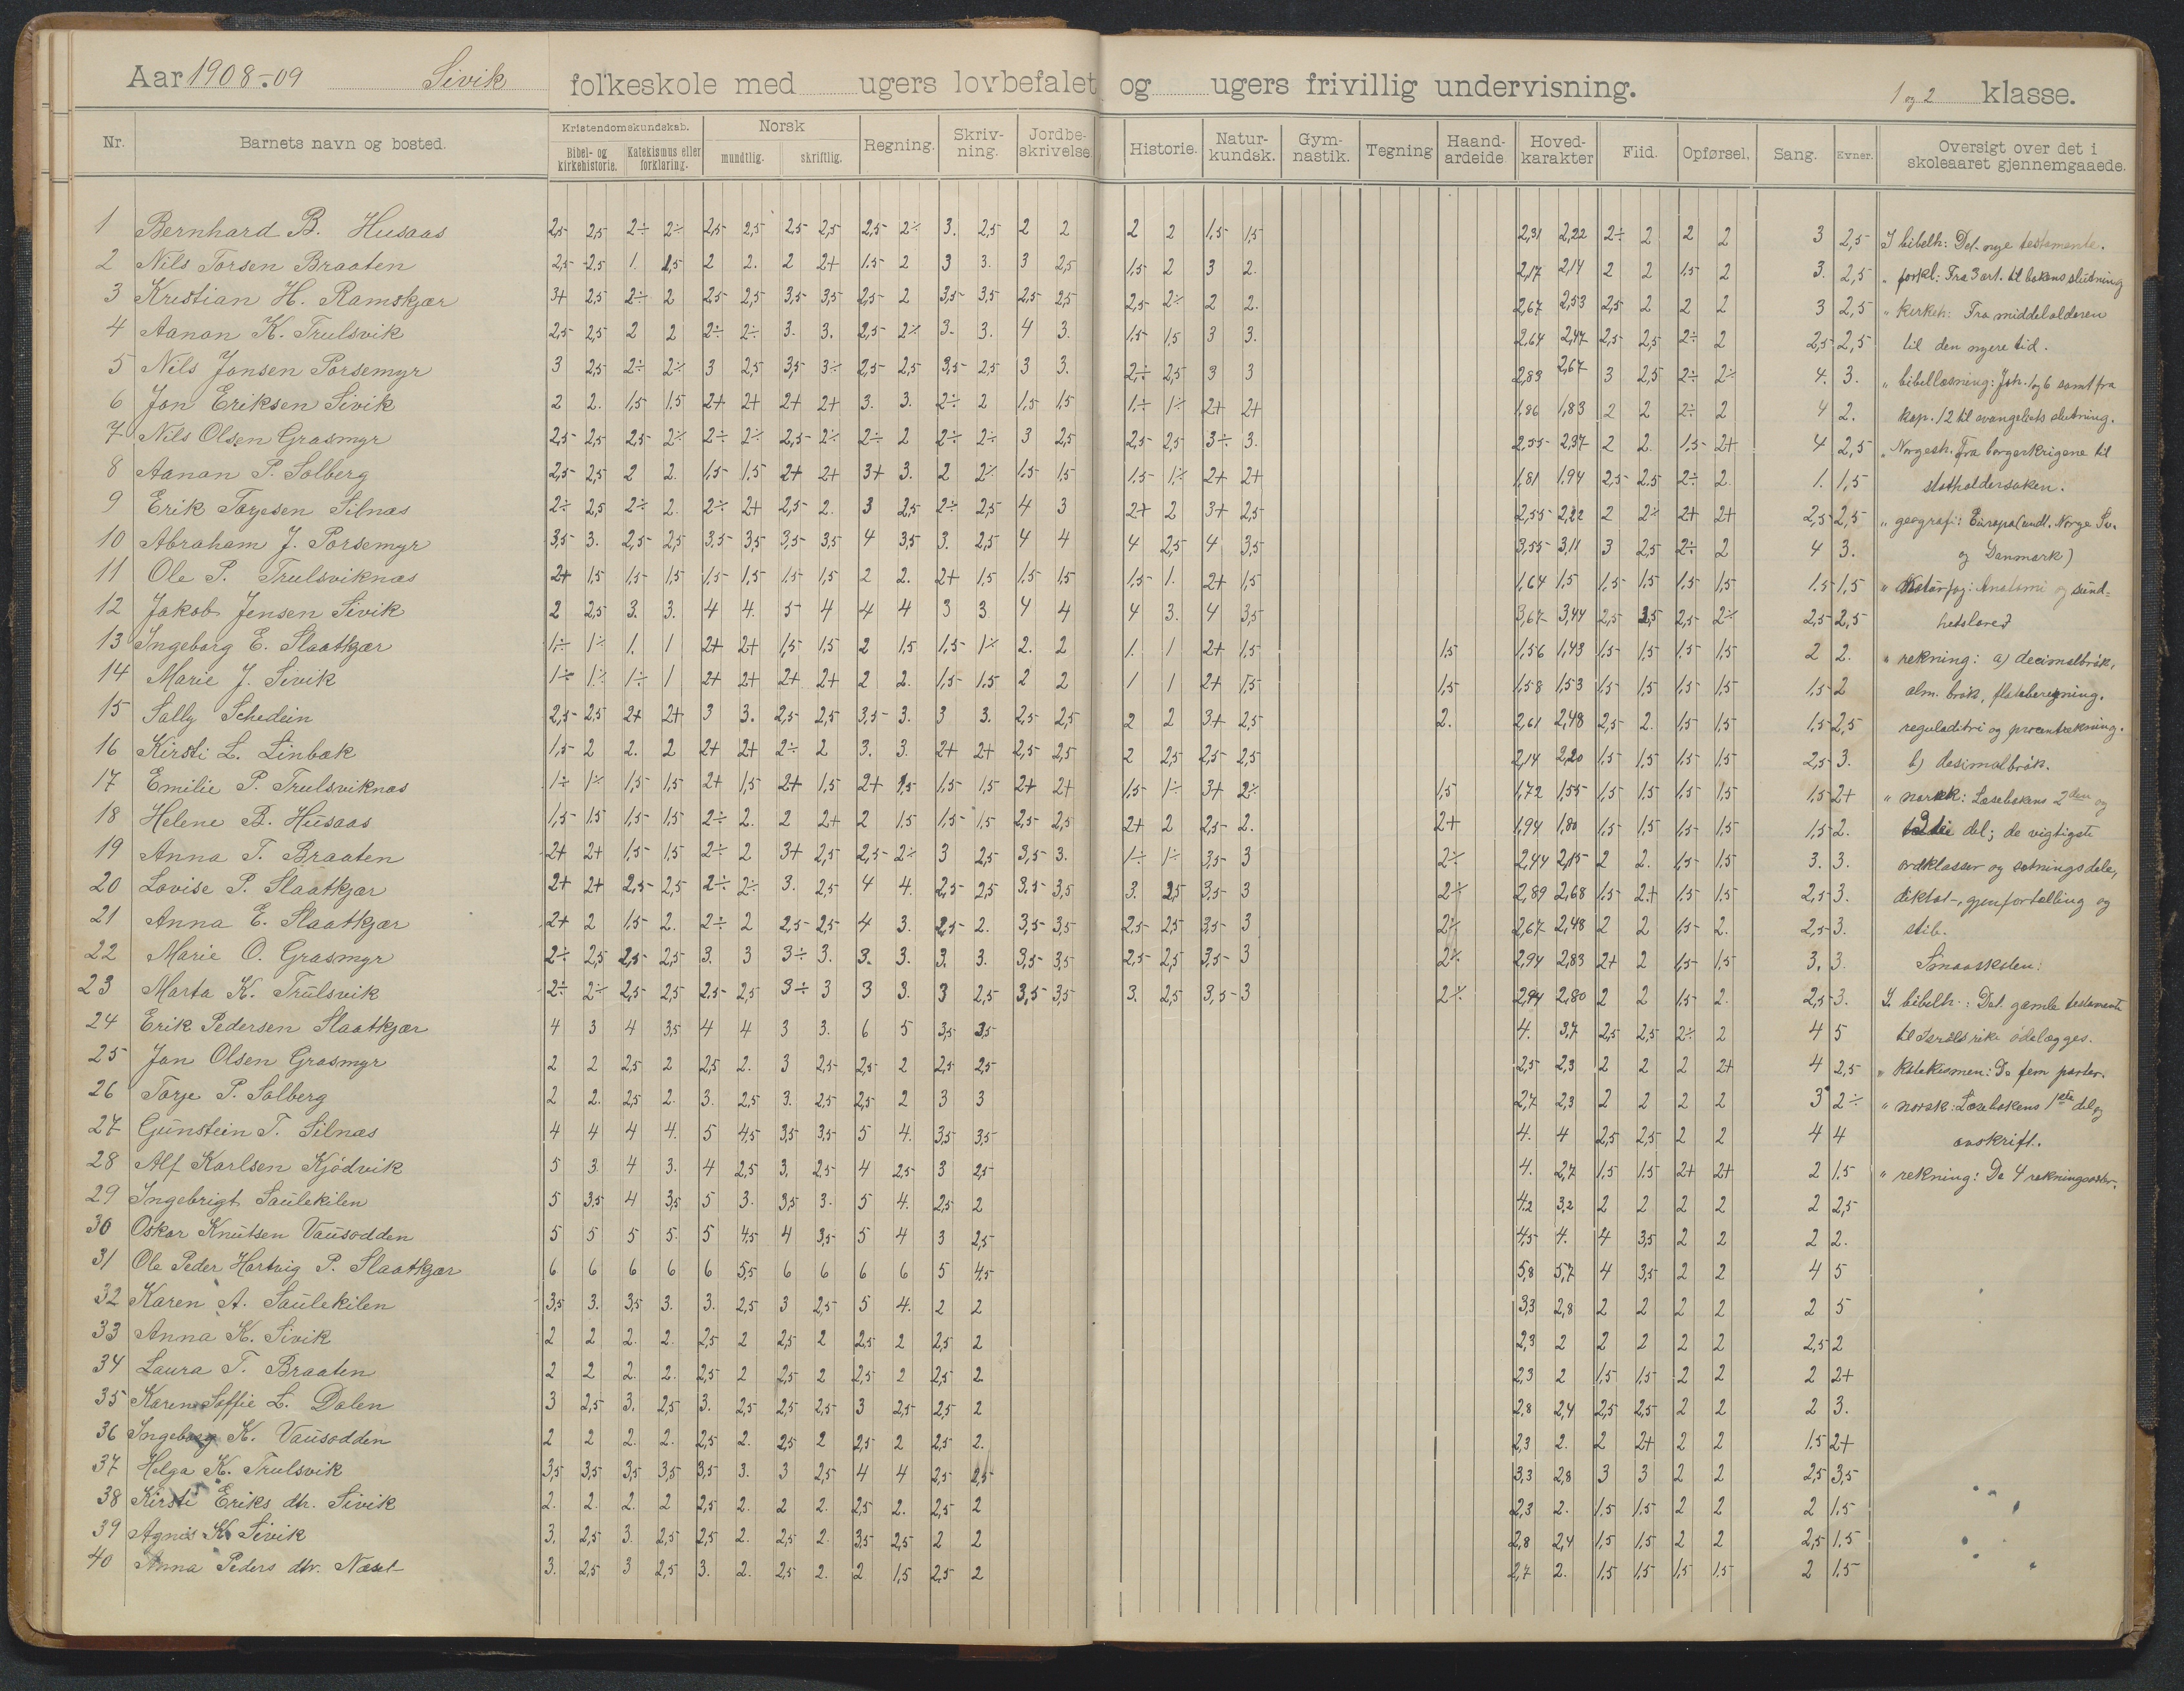 Aar 1908-09 Sivik folkeskole med ugers lovbefalet og ugers frivillig undervisning. 1 og 2 klasse.
Nr. Barnets navn og bosted. Kristendomskundskab. Bibel- og kirkehistorie. Katekismus eller forklaring. Norsk mundtlig. skriftlig. Regning. Skriv-ning. Jordbe-skrivelse. Historie. Natur-kundsk. Gym-nastik. Tegning Haand-arbeide Hoved-karakter Flid. Opførsel. Sang. Evner. Oversigt over det i skoleaaret gjennemgaaede.
1 Bernhard B. Husaas 2,5 2,5 2÷ 2÷ 2,5 2,5 2,5 2,5 2,5 2÷ 3. 2,5 2 2 2 2 1,5 1,5 2,31 2,22 2÷ 2 2 2 3 2,5 I bibelh: Det nye testamente.
2 Nils Torsen Braaten 2,5 2,5 1. 1,5 2 2. 2 2+ 1,5 2 3 3. 3 2,5 1,5 2 3 2. 2,17 2,14 2 2 1,5 2 3. 2,5 " forkl: Fra 3 art. til bokens slutning
3 Kristian H. Ramskjær 3+ 2,5 2÷ 2 2,5 2,5 3,5 3,5 2,5 2 3,5 3,5 2,5 2,5 2,5 2÷ 2 2. 2,67 2,53 2,5 2 2 2 3 2,5 " kirkeh: Fra middelalderen
4 Aanon K. Trulsvik 2,5 2,5 2 2 2÷ 2÷ 3. 3. 2,5 2÷ 3. 3. 4 3. 1,5 1,5 3 3. 2,64 2,47 2,5 2,5 2÷ 2 2,5 2,5 til den nyere tid.
5 Nils Jensen Porsemyr 3 2,5 2÷ 2÷ 3 2,5 3,5 3÷ 2,5 2,5 3,5 2,5 3 3. 2÷ 2,5 3 3 2,83 2,67 3 2,5 2÷ 2÷ 4. 3. " bibellæsning: Joh. 1 og 6 samt fra
6 Jon Eriksen Sivik 2 2. 1,5 1,5 2+ 2+ 2+ 2+ 3. 3. 2÷ 2 1,5 1,5 1÷ 1÷ 2+ 2+ 1,86 1,83 2 2 2÷ 2 4 2. kap. 12 til evangeliets slutning.
7 Nils Olsen Grasmyr 2,5 2,5 2,5 2÷ 2÷ 2÷ 2,5 2÷ 2÷ 2 2÷ 2÷ 3 2,5 2,5 2,5 3÷ 3. 2,55 2,37 2 2. 1,5 2+ 4 2,5 " Norgesh. Fra borgerkrigene til
8 Aanon P. Solberg 2,5 2,5 2 2. 1,5 1,5 2+ 2+ 3+ 3. 2 2÷ 1,5 1,5 1,5 1÷ 2+ 2+ 1,81 1,94 2,5 2,5 2÷ 2. 1. 1,5 statholdersaken.
9 Erik Torjesen Silnæs 2÷ 2,5 2÷ 2. 2÷ 2+ 2,5 2. 3 2,5 2÷ 2,5 4 3 2+ 2 3+ 2,5 2,55 2,22 2 2÷ 2+ 2+ 2,5 2,5 " geografi: Europa (undt. Norge Sv.
10 Abraham J. Porsemyr 3,5 3. 2,5 2,5 3,5 3,5 3,5 3,5 4 3,5 3. 2,5 4 4 4 2,5 4 3,5 3,55 3,11 3 2,5 2÷ 2 4 3. og Danmark)
11 Ole P. Trulsviknæs 2+ 1,5 1,5 1,5 1,5 1,5 1,5 1,5 2 2. 2+ 1,5 1,5 1,5 1,5 1. 2+ 1,5 1,64 1,5 1,5 1,5 1,5 1,5 1,5 1,5 " Naturfag: Anatomi og sund-
12 Jakob Jensen Sivik 2 2,5 3. 3. 4 4. 5 4 4 4 3 3 4 4 4 3. 4 3,5 3,67 3,44 2,5 2,5 2,5 2÷ 2,5 2,5 hetslære
13 Ingeborg E. Slaatkjær 1÷ 1÷ 1. 1 2+ 2+ 1,5 1,5 2 1,5 1,5 1÷ 2. 2 1. 1 2+ 1,5 1,5 1,56 1,43 1,5 1,5 1,5 1,5 2 2. " rekning: a) decimalbrøk,
14 Marie J. Sivik 1÷ 1÷ 1÷ 1 2+ 2+ 2+ 2+ 2 2. 1,5 1,5 2 2 1 1 2+ 1,5 1,5 1,58 1,53 1,5 1,5 1,5 1,5 1,5 2 alm. brøk, flateberegning.
15 Sally Schedein 2,5 2,5 2+ 2+ 3 3. 2,5 2,5 3,5 3. 3 3. 2,5 2,5 2 2 3+ 2,5 2. 2,61 2,48 2,5 2. 1,5 1,5 1,5 2,5 reguladitri og procentrekning.
16 Kirsti L. Linbæk 1,5 2 2. 2 2+ 2+ 2÷ 2 3. 3. 2+ 2+ 2,5 2,5 2 2,5 2,5 2,5 2,14 2,20 1,5 1,5 1,5 1,5 2,5 3. b) desimalbrøk.
17 Emilie P. Trulsviknæs 1÷ 1÷ 1,5 1,5 2+ 1,5 2+ 1,5 2+ 1,5 1,5 1,5 2+ 2+ 1,5 1÷ 3+ 2÷ 1,5 1,72 1,55 1,5 1,5 1,5 1,5 1,5 2+ " norsk: Læsebokens 2den og
18 Helene B. Husaas 1,5 1,5 1,5 1,5 2÷ 2. 2 2+ 2 1,5 1,5 1,5 2,5 2,5 2+ 2 2,5 2. 2+ 1,94 1,80 1,5 1,5 1,5 1,5 1,5 2. 3die del; de vigtigste
19 Anna T. Braaten 2+ 2+ 1,5 1,5 2÷ 2 3+ 2,5 2,5 2÷ 3 2,5 3,5 3. 1÷ 1÷ 3,5 3 2÷ 2,44 2,15 2 2. 1,5 1,5 3. 3. ordklasser og sætningsdele,
20 Lovise P. Slaatkjær 2+ 2+ 2,5 2,5 2÷ 2÷ 3. 2,5 4 4. 2,5 2,5 3,5 3,5 3. 2,5 3,5 3 2÷ 2,89 2,68 1,5 2+ 1,5 1,5 2,5 3. diktat-, gjenfortælling og
21 Anna E. Slaatkjær 2+ 2 1,5 2. 2÷ 2 2,5 2,5 4 3. 2,5 2. 3,5 3,5 2,5 2,5 3,5 3 2÷ 2,67 2,48 2 2 1,5 2. 2,5 3. stil.
22 Marie O. Grasmyr 2÷ 2,5 2,5 2,5 3. 3 3÷ 3. 3. 3. 3. 3. 3,5 3,5 2,5 2,5 3,5 3 2÷ 2,94 2,83 2+ 2 1,5 1,5 3. 3. Smaaskolen:
23 Marta K. Trulsvik 2÷ 2÷ 2,5 2,5 2,5 2,5 3÷ 3 3 3. 3 2,5 3,5 3,5 3. 2,5 3,5 3 2÷ 2,94 2,80 2 2 1,5 2. 2,5 3. I bibelh.: Det gamle testamente
24 Erik Pedersen Slaatkjær 4 3 4 3,5 4 4 3 3. 6 5 3,5 3,5 4. 3,7 2,5 2,5 2÷ 2 4 5 til Israels rike ødelægges.
25 Jon Olsen Grasmyr 2 2 2,5 2 2,5 2. 3 2,5 2,5 2 2,5 2,5 2,5 2,3 2 2 2 2+ 4 2,5 " Katekismen: De fem parter.
26 Torje P. Solberg 2 2. 2,5 2. 3. 2,5 3. 2,5 2,5 2 3 3 2,7 2,3 2 2 2 2 3 2÷ " norsk: Læsebokens 1ste del og
27 Gunstein T. Silnæs 4 4 4 4. 5 4,5 3,5 3,5 5 4. 3,5 3,5 4. 4 2,5 2,5 2 2 4 4 avskrift.
28 Alf Karlsen Kjödvik 5 3. 4 3. 4 2,5 3. 2,5 4 2,5 3 2,5 4. 2,7 1,5 1,5 2+ 2+ 2 1,5 " rekning: De 4 rekningsarter.
29 Ingebrigt Saulekilen 5 3,5 4 3,5 5 3. 3,5 3. 5 4. 2,5 2 4,2 3,2 2 2 2 2 2 2,5
30 Oskar Knutsen Vausodden 5 5 5 5. 5 4,5 4 3,5 5 4 3 2,5 4,5 4. 4 3,5 2 2 2 2.
31 Ole Peder Hartvig P. Slaatkjær 6 6 6 6 6 5,5 6 6 6 6 5 4,5 5,8 5,7 4 3,5 2 2 4 5
32 Karen A. Saulekilen 3,5 3. 3,5 3. 3. 2,5 3 2,5 5 4. 2 2 3,3 2,8 2 2 2 2 2 5
33 Anna K. Sivik 2 2 2. 2. 2,5 2 2,5 2 2,5 2 2,5 2 2,3 2 2 2 2 2 2,5 2
34 Laura T. Braaten 2 2 2. 2. 2,5 2 2,5 2 2,5 2 2,5 2 2,3 2 1,5 1,5 2 2 2 2+
35 Karen Soffie L. Dalen 3 2,5 3. 2,5 3. 2,5 2,5 2,5 3 2,5 2,5 2 2,8 2,4 2,5 2,5 2 2 2 3.
36 Ingeborg K. Vausodden 2 2 2. 2. 2,5 2. 2,5 2 2,5 2 2,5 2. 2,3 2. 2 2+ 2 2 1,5 2+
37 Helga K. Trulsvik 3,5 3,5 3,5 3,5 3,5 3. 3 2,5 4 4 2,5 2,5 3,3 2,8 3 3 2 2 2,5 3,5
38 Kirsti Eriks dtr. Sivik 2. 2. 2. 2 2,5 2. 2 2. 2,5 2. 2,5 2 2,3 2. 1,5 1,5 2 2 2 1,5
39 Agnes K. Sivik 3. 2,5 3. 2,5 2,5 2. 2,5 2. 3,5 2,5 2 2 2,8 2,4 1,5 1,5 2 2 2,5 1,5
40 Anna Peders dtr. Næset 3. 2,5 3 2,5 3. 2. 2,5 2. 2 1,5 2,5 2 2,7 2. 1,5 1,5 1,5 1,5 2 1,5